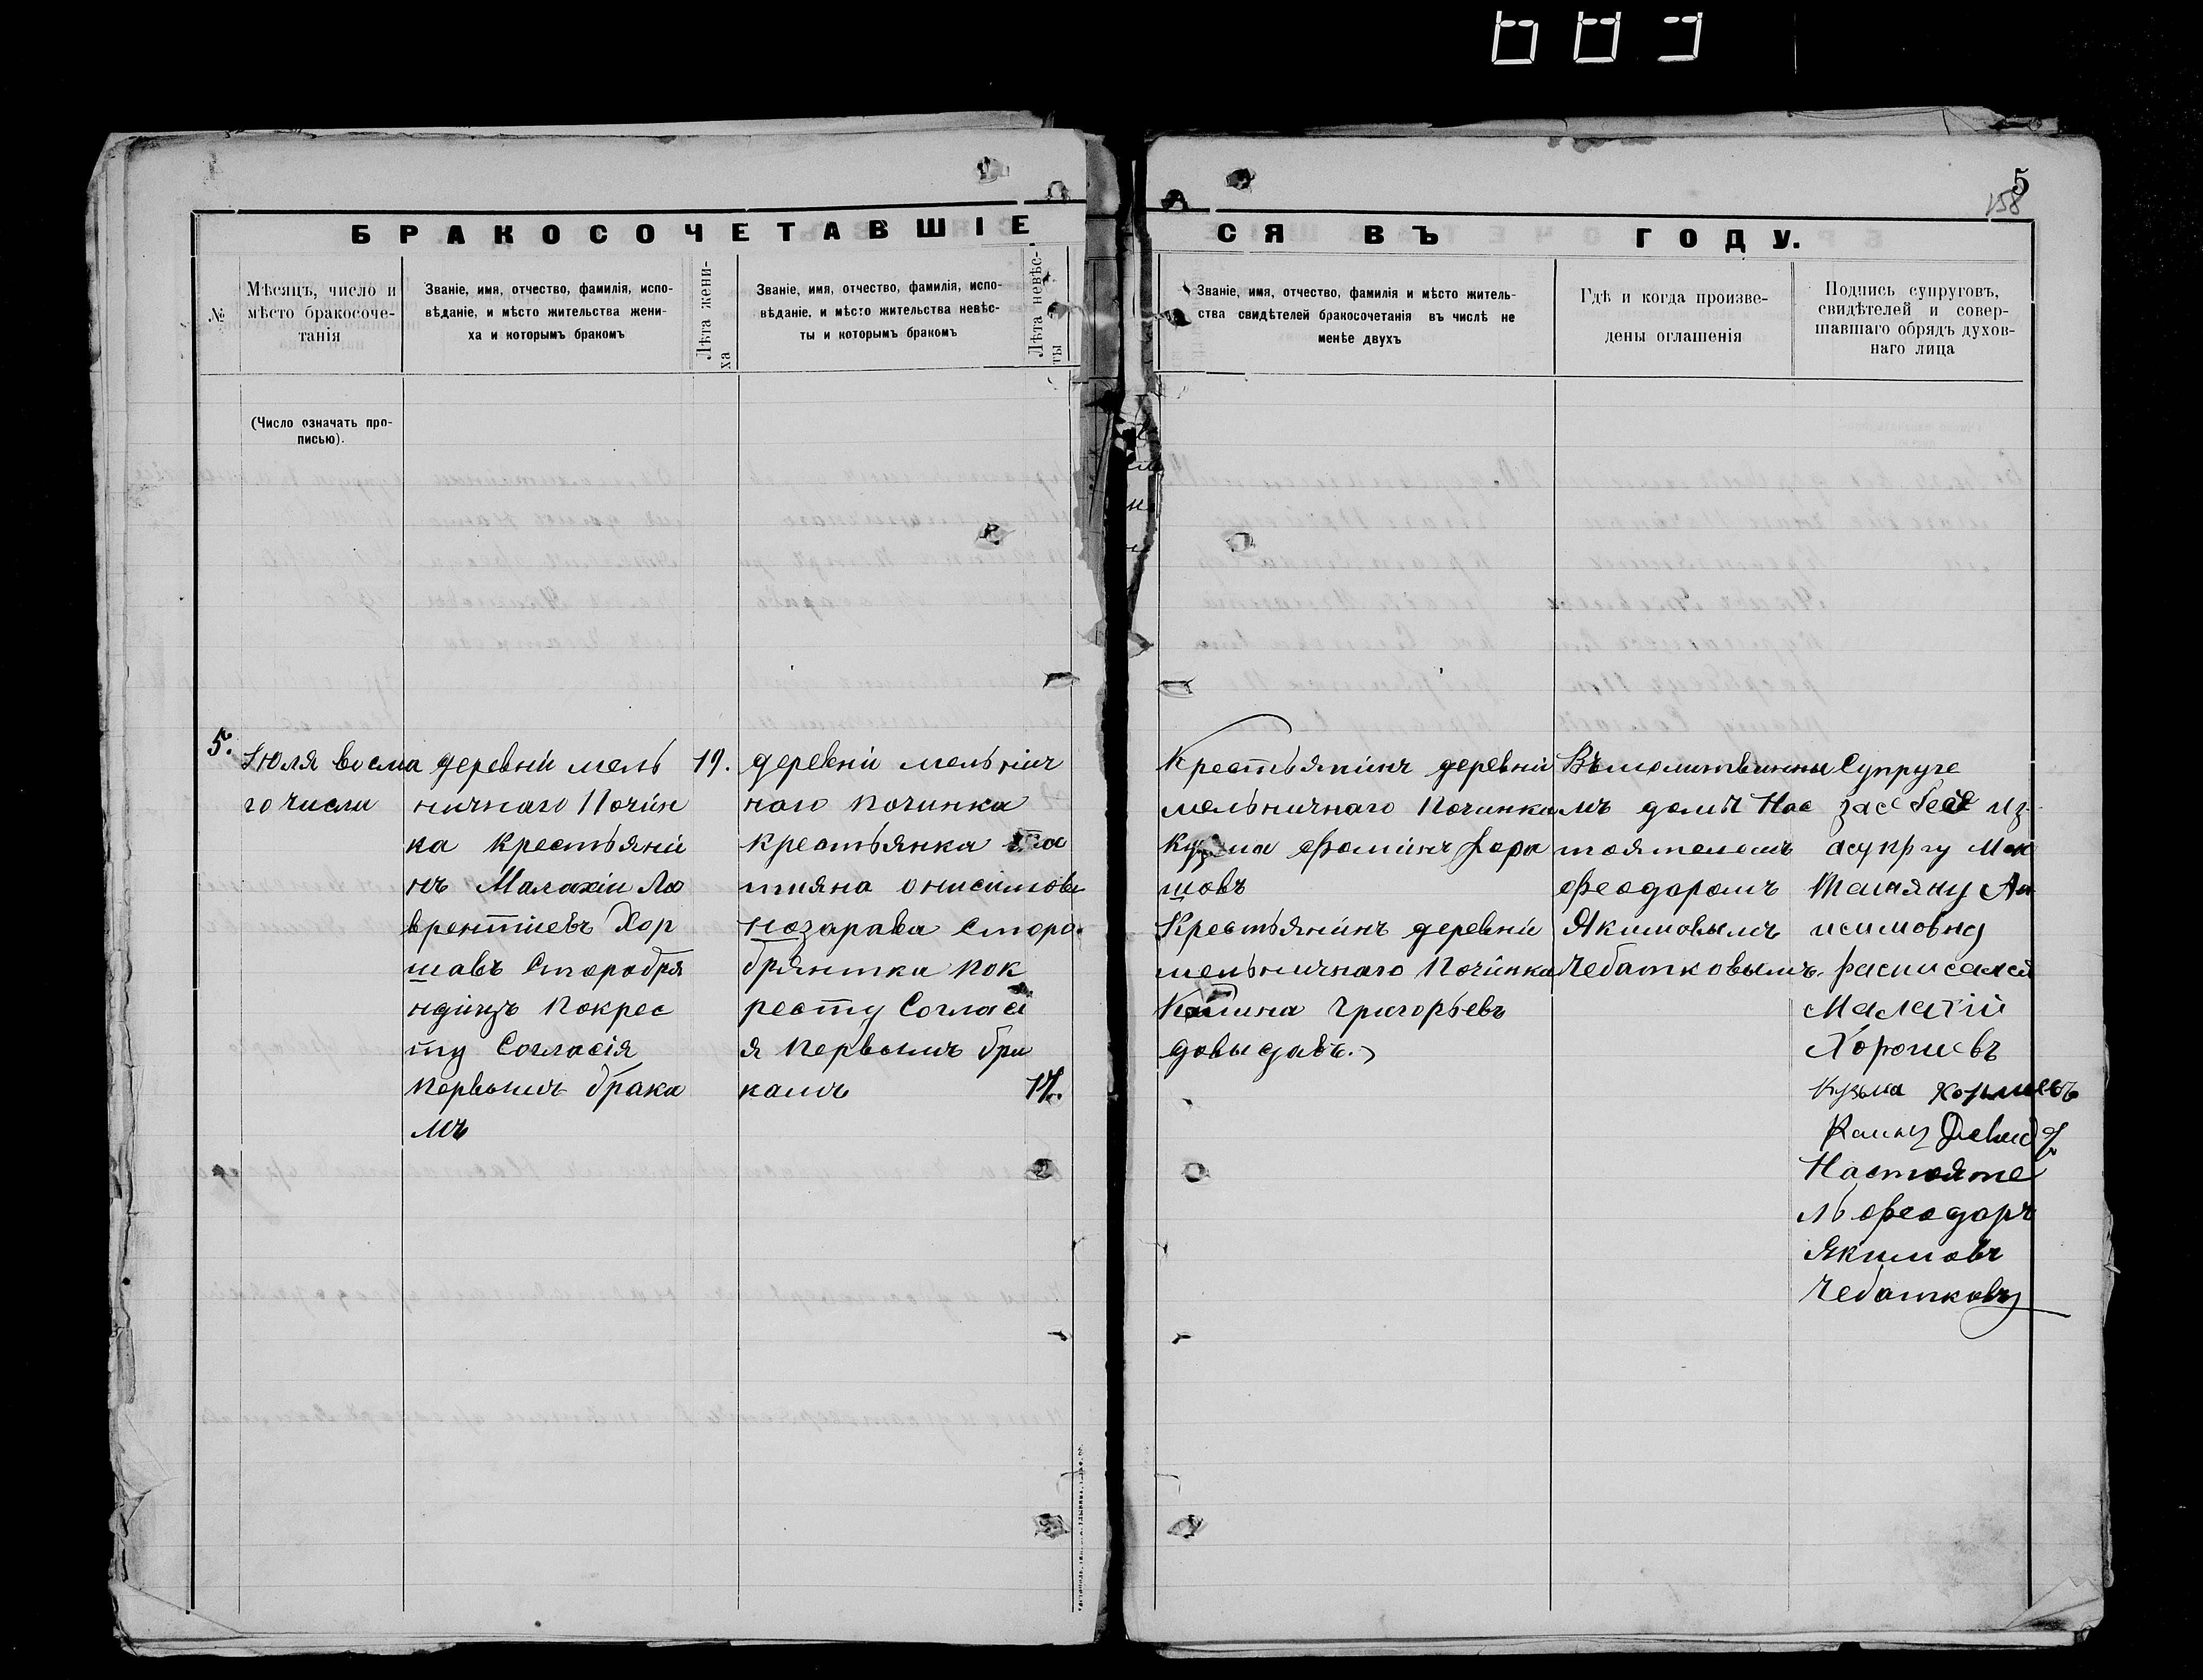 5
158
БРАКОСОЧЕТАВШІЕ
СЯ ВЪ ГОДУ.
№
Мѣсяцъ, число и
мѣсто бракосоче-
танія
Званіе, имя, отчество, фамилія, испо-
вѣданіе, и мѣсто жительства жени-
ха и которымъ бракомъ
Лѣта жени-
ха
Званіе, имя, отчество, фамилія, испо-
вѣданіе, и мѣсто жительства невѣс-
ты и которымъ бракомъ
Лѣта невѣс-
ты
Званіе, имя, отчество, фамилія и мѣсто житель-
ства свидѣтелей бракосочетанія въ числѣ не
менѣе двухъ
Гдѣ и когда произве-
дены оглашенія
Подпись супруговъ,
свидѣтелей и совер-
шавшаго обрядъ духов-
наго лица
(Число означать про-
писью).
5.
Іюля восма
го числа
деревни мель
ничнаго Почин
ка крестьяни
нъ Малахіи Ла
врентіевъ Хор
шавъ Старобря
ндінцъ Покрес
ту Согласія
первымъ брака
мъ
19.
деревни мельнич
ного починка
крестьянка
тияна онисимова
назарава Старо
брянтка Пок
ресту Согласі
я первымъ бра
камъ
17.
Крестьянинъ деревни
мельничнаго Починка
Кузма Фоминъ Хора
шовъ
Крестьянинъ деревни
мельничнаго Починка
Калина Григорьевъ
довыдавъ.
Въ молитвинны
мъ домѣ Нас
тоятелемъ
Феодоромъ
Якимовымъ
Чебатковымъ.
Супруге
зас себе из
асупргу Мою
Татяну Ан
исимовну
расписался
Малахій
Хорошевъ
Кузьма Хоршевъ
Калину
Настояте
ль Феодоръ
Якимовъ
Чебатковъ